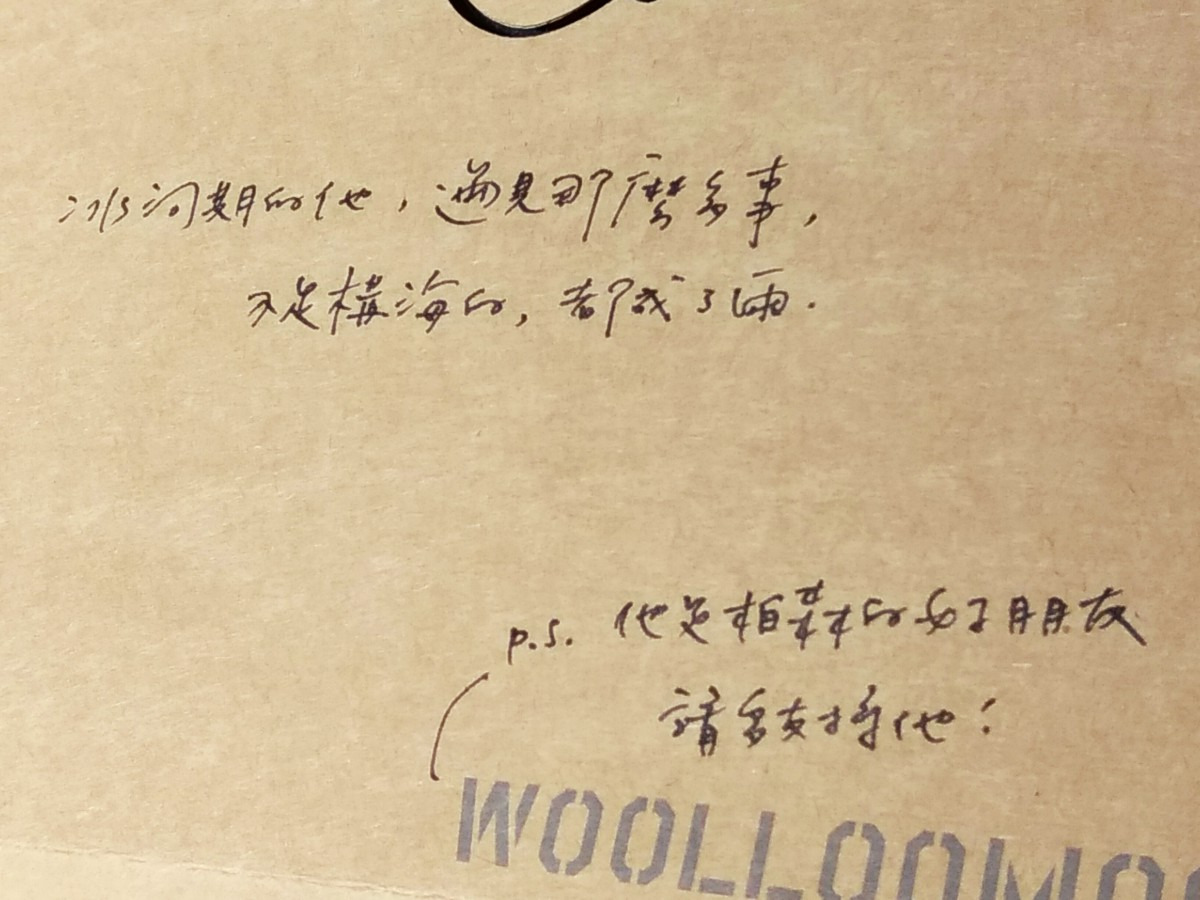 冰河期的他，遇見那麼多事，
不足構海的，都成了雨.
p.s. 他是柏森的好朋友
請多支持他！
WOOLLOOMOO